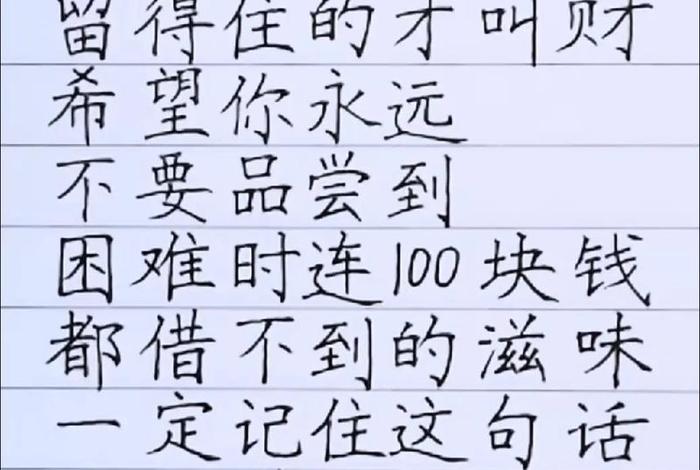 留得住的才叫财
希望你永远
不要品尝到
困难时连100块钱
都借不到的滋味
一定记住这句话